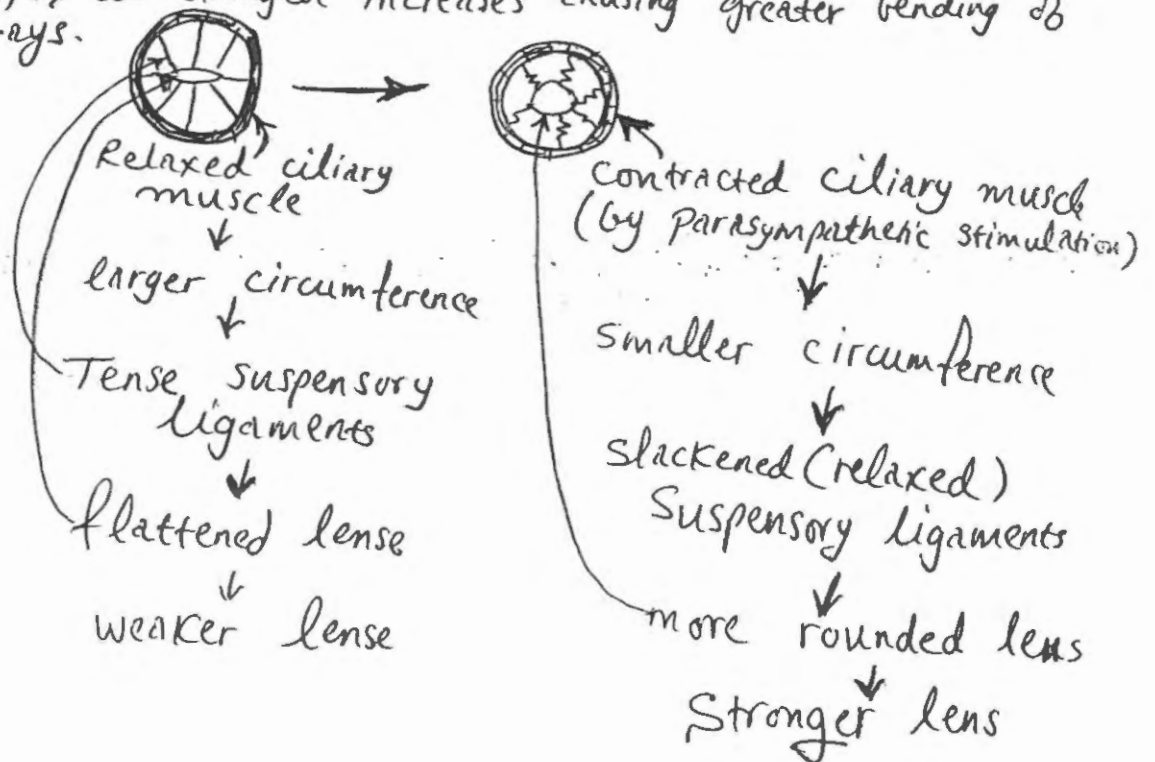 increases causing greater bending of
rays.
Relaxed ciliary
muscle
larger circumference
Tense suspensory
ligaments
flattened lense
weaker lense
contracted ciliary muscle
(by parasympathetic stimulation)
smaller circumference
slackened (relaxed)
Suspensory ligaments
more rounded lens
Stronger lens